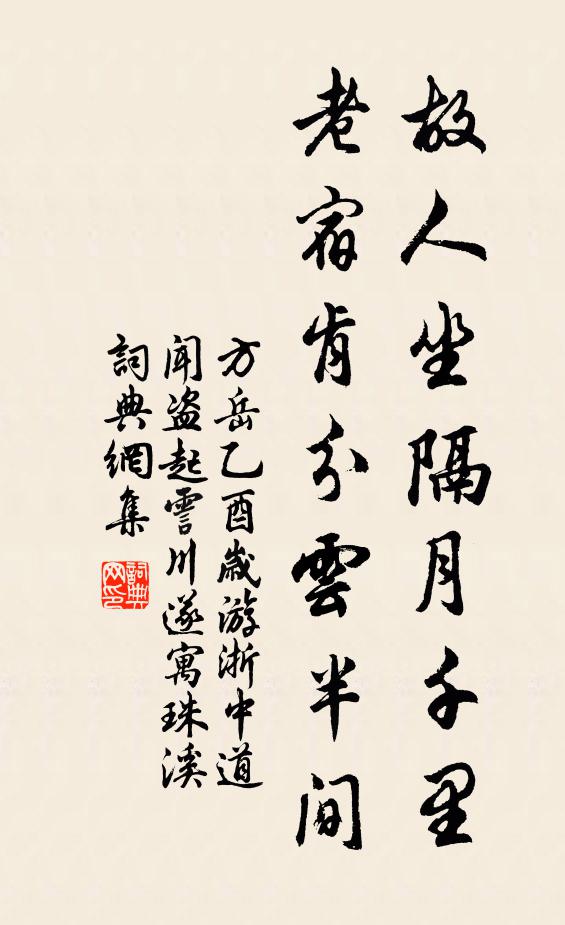 故人坐隔月千里
老宿肯分雲半间
方岳乙酉歲游浙中道
闻盗起霅川遂寓珠溪
詞典網集
詞典网印